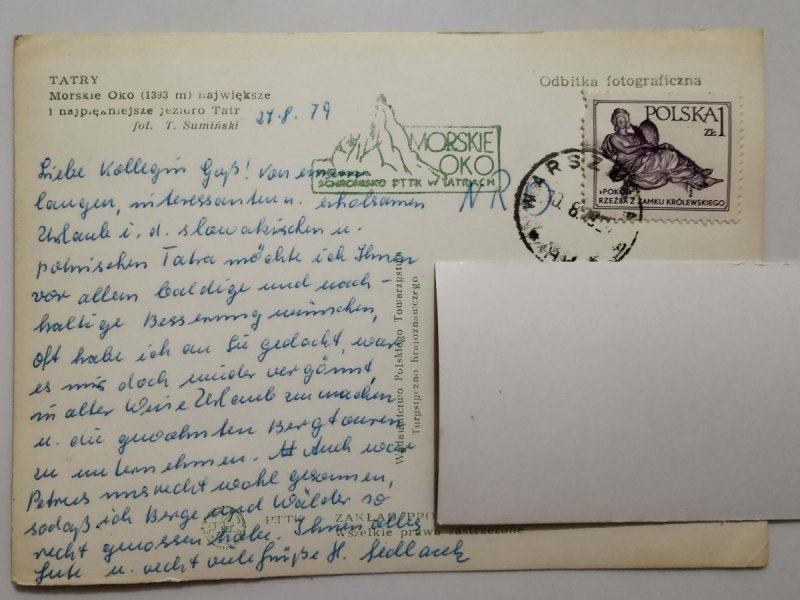 TATRY
Morskie Oko (1393 m) największe
i najpiękniejsze jezioro Tatr
fot. T. Sumiński
Odbitka fotograficzna
27.8.79
MORSKIE
OKO
SCHRONISKO PTTK W TATRACH
POLSKA 1
ZŁ
»POKÓJ«
RZEŹBA Z ZAMKU KRÓLEWSKIEGO
WARSZ
NRD
Liebe Kollegin Gaß! Von einem
langen, interessanten u. erholsamen
Urlaub i. d. slowakischen u.
polnischen Tatra möchte ich Ihnen
vor allem baldige und nach-
haltige Besserung wünschen,
oft habe ich an Sie gedacht, war
es mir doch wieder vergönnt,
in alter Weise Urlaub zu machen
u. die gewohnten Bergtouren
zu unternehmen. Auch war
Petrus uns recht wohl gesonnen,
sodaß ich Berge und Wälder so
recht genossen habe. Ihnen alles
Gute u. recht viele Grüße H. Sedlacek
Wydawnictwo Polskiego Towarzystwa
Turystyczno Krajoznawczego
PTTK ZAKŁAD PRO
wszelkie prawa zastrzeżone